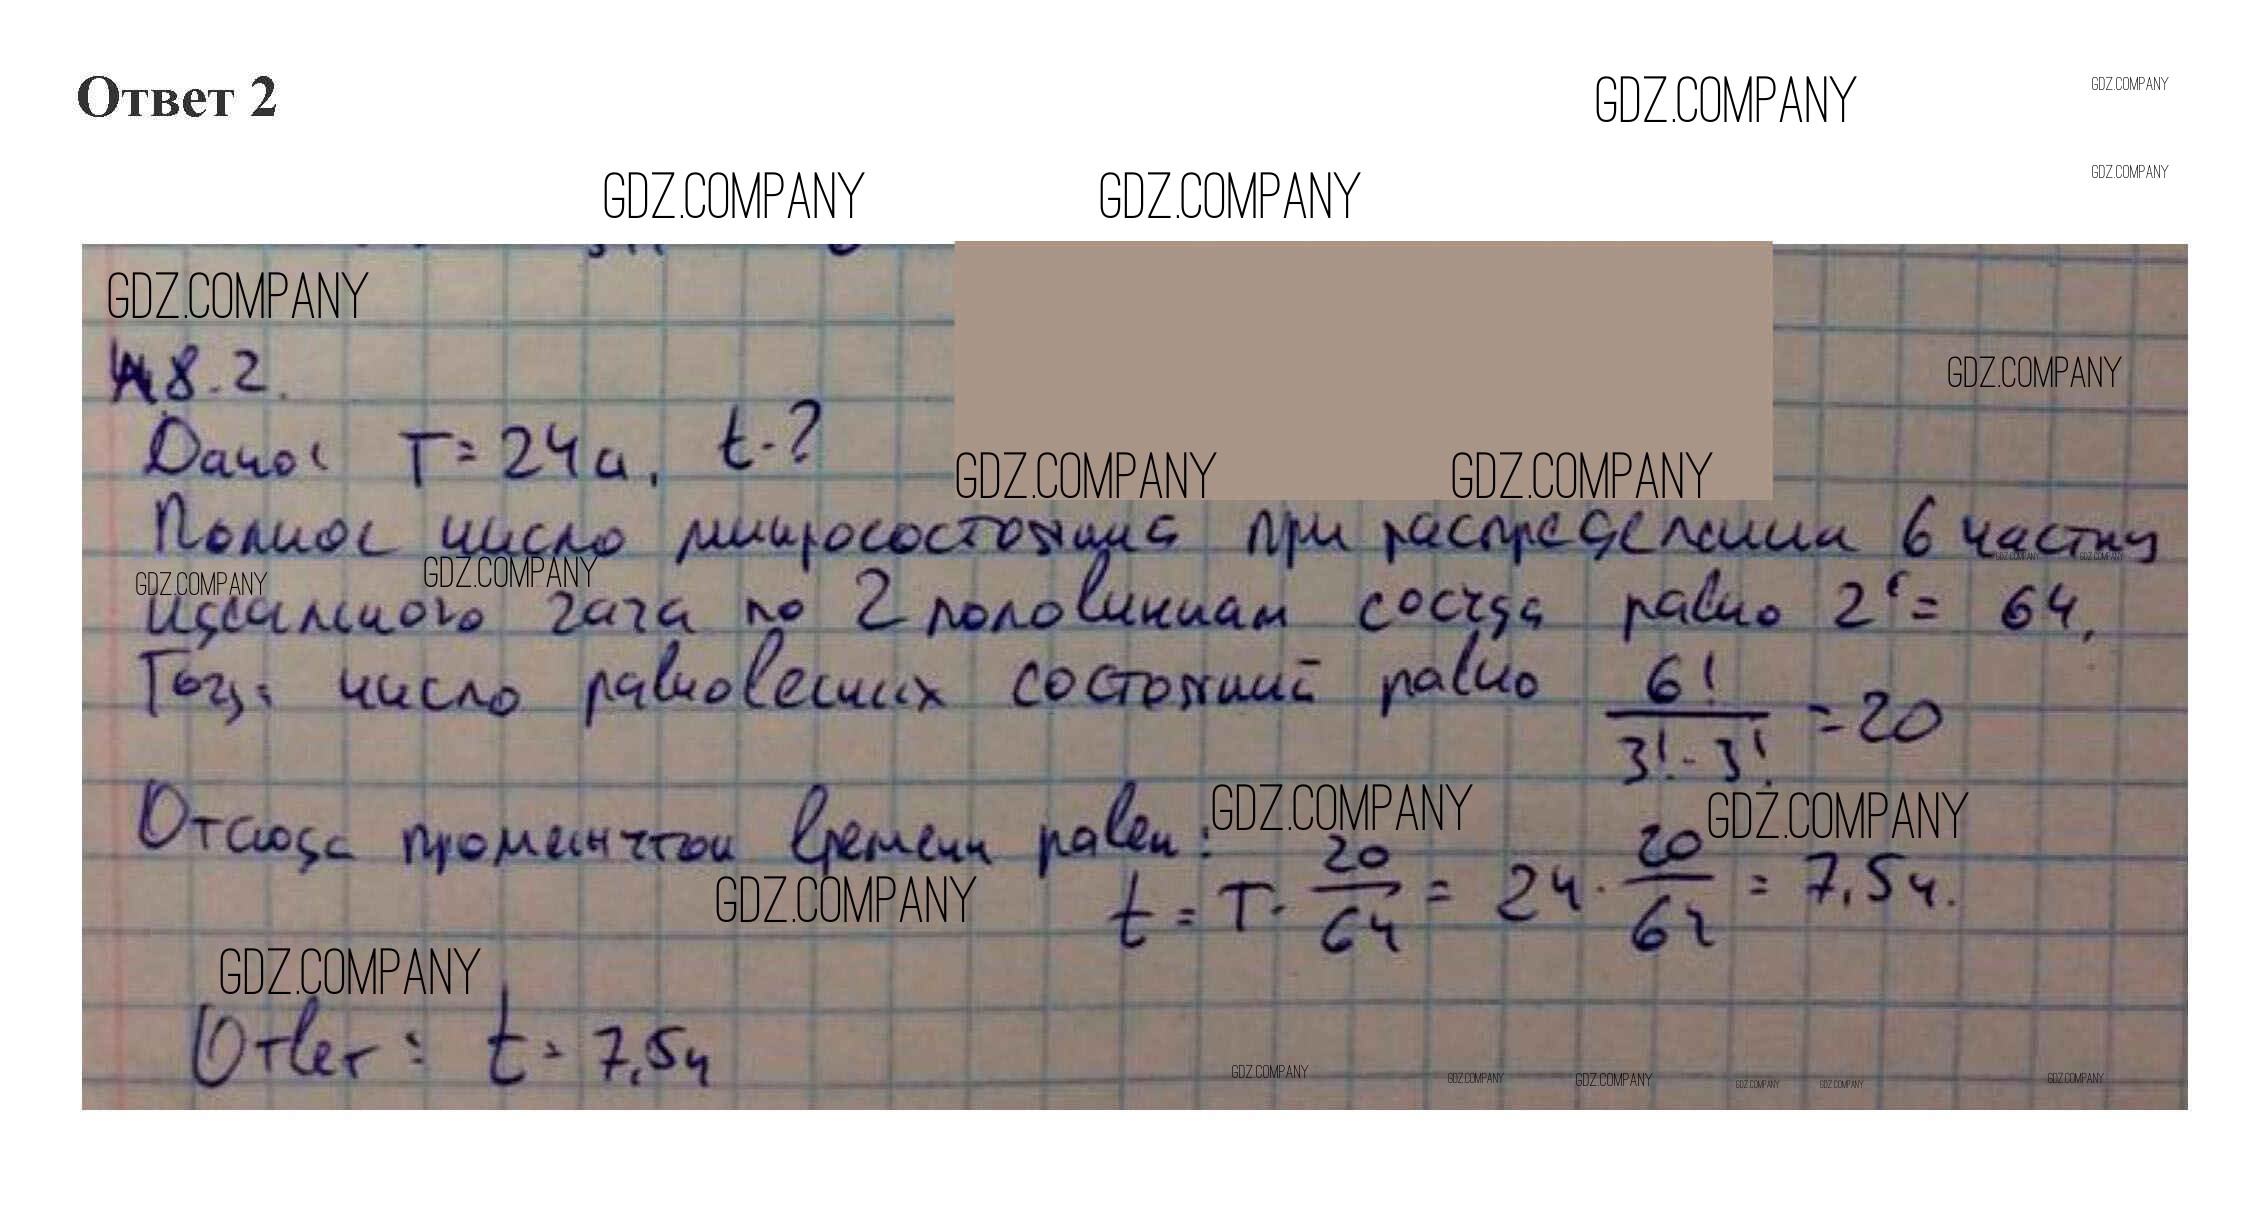 Ответ 2
GDZ.COMPANY
GDZ.COMPANY
GDZ.COMPANY
GDZ.COMPANY
GDZ.COMPANY
GDZ.COMPANY
48.2.
GDZ.COMPANY
Дано: T = 24ч, t - ?
GDZ.COMPANY
GDZ.COMPANY
Полное число микросостояний при распределении 6 частиц
GDZ.COMPANY
GDZ.COMPANY
GDZ.COMPANY
GDZ.COMPANY
идеального газа по 2 половинкам сосуда равно 2⁶ = 64.
Тогда число равновесных состояний равно 6! / 3! · 3! = 20
GDZ.COMPANY
GDZ.COMPANY
Отсюда промежуток времени равен:
t = T · 20/64 = 24 · 20/64 = 7,5ч.
GDZ.COMPANY
GDZ.COMPANY
Ответ: t = 7,5ч
GDZ.COMPANY
GDZ.COMPANY
GDZ.COMPANY
GDZ.COMPANY
GDZ.COMPANY
GDZ.COMPANY